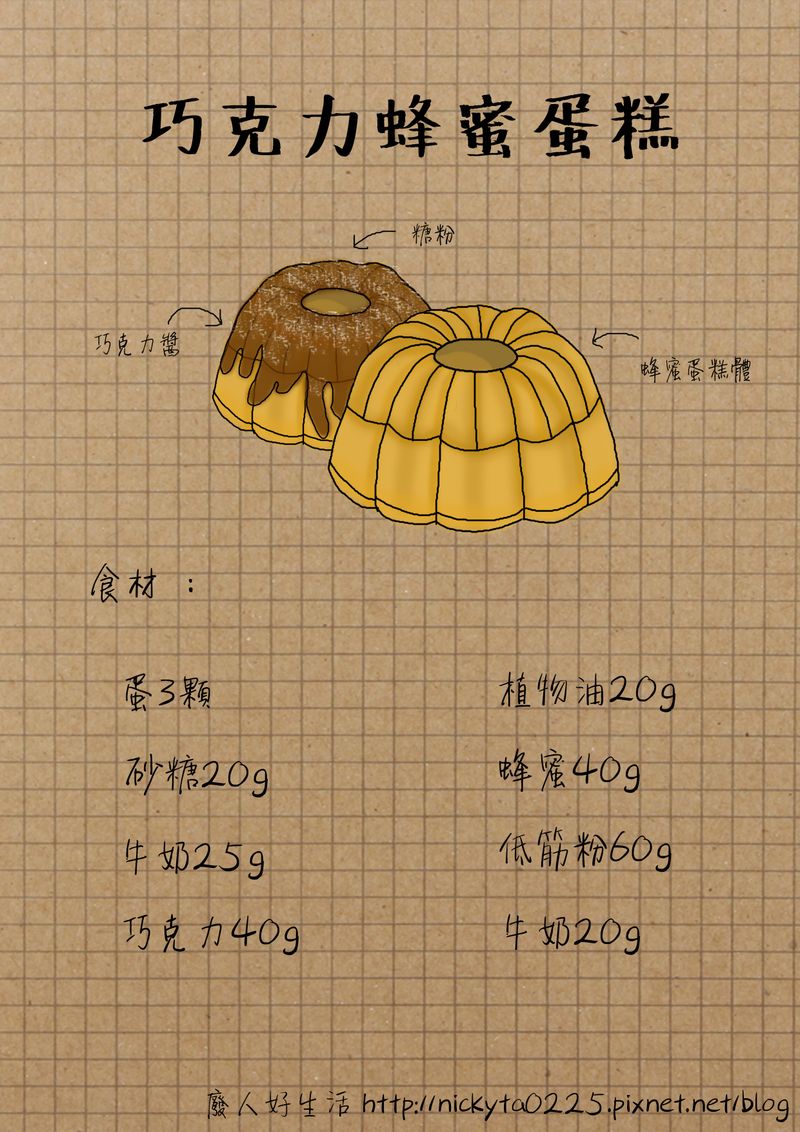 巧克力蜂蜜蛋糕
糖粉
巧克力醬
蜂蜜蛋糕體
食材 :
蛋3顆
植物油20g
砂糖20g
蜂蜜40g
牛奶25g
低筋粉60g
巧克力40g
牛奶20g
廢人好生活 http://nickyta0225.pixnet.net/blog